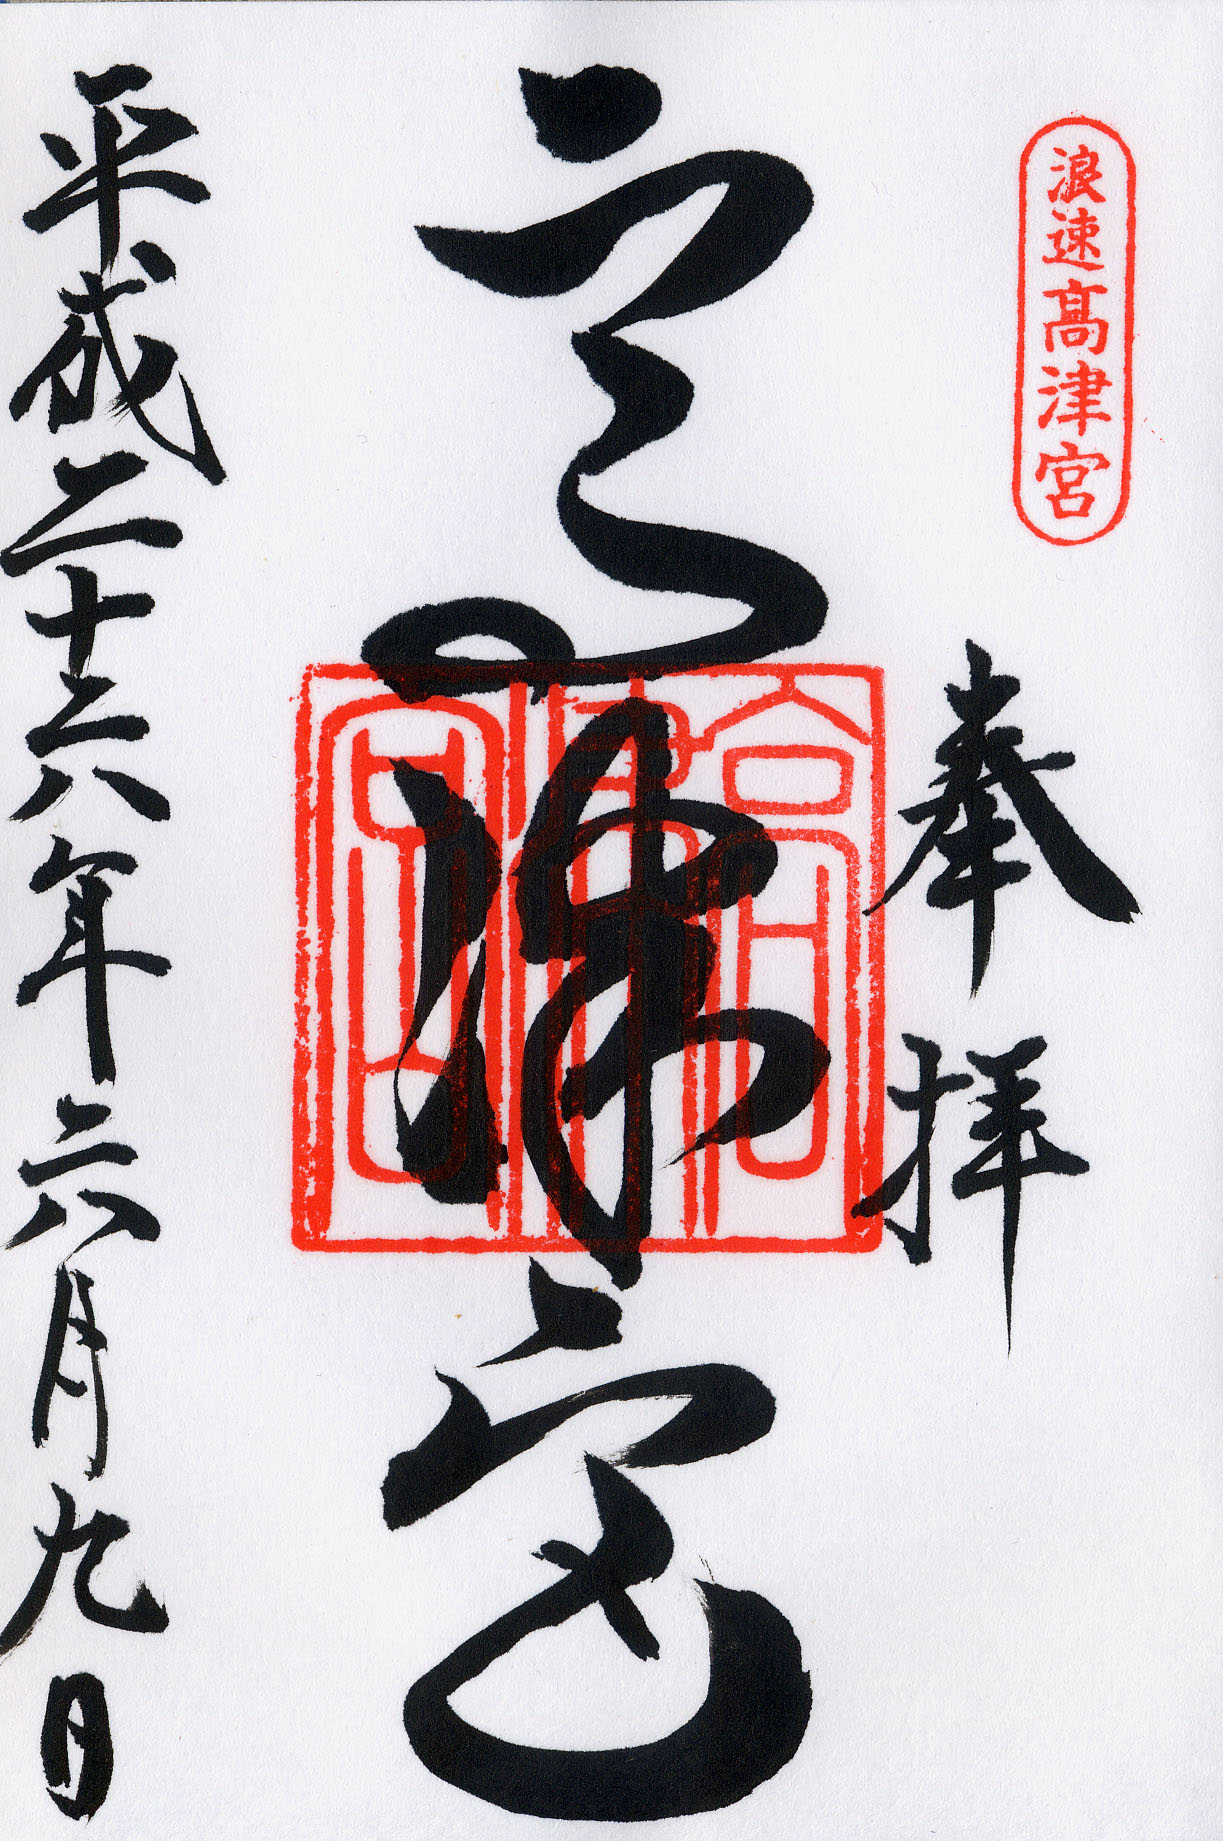 浪速髙津宮
奉拝
高津宮
高津宮
平成二十六年六月九日